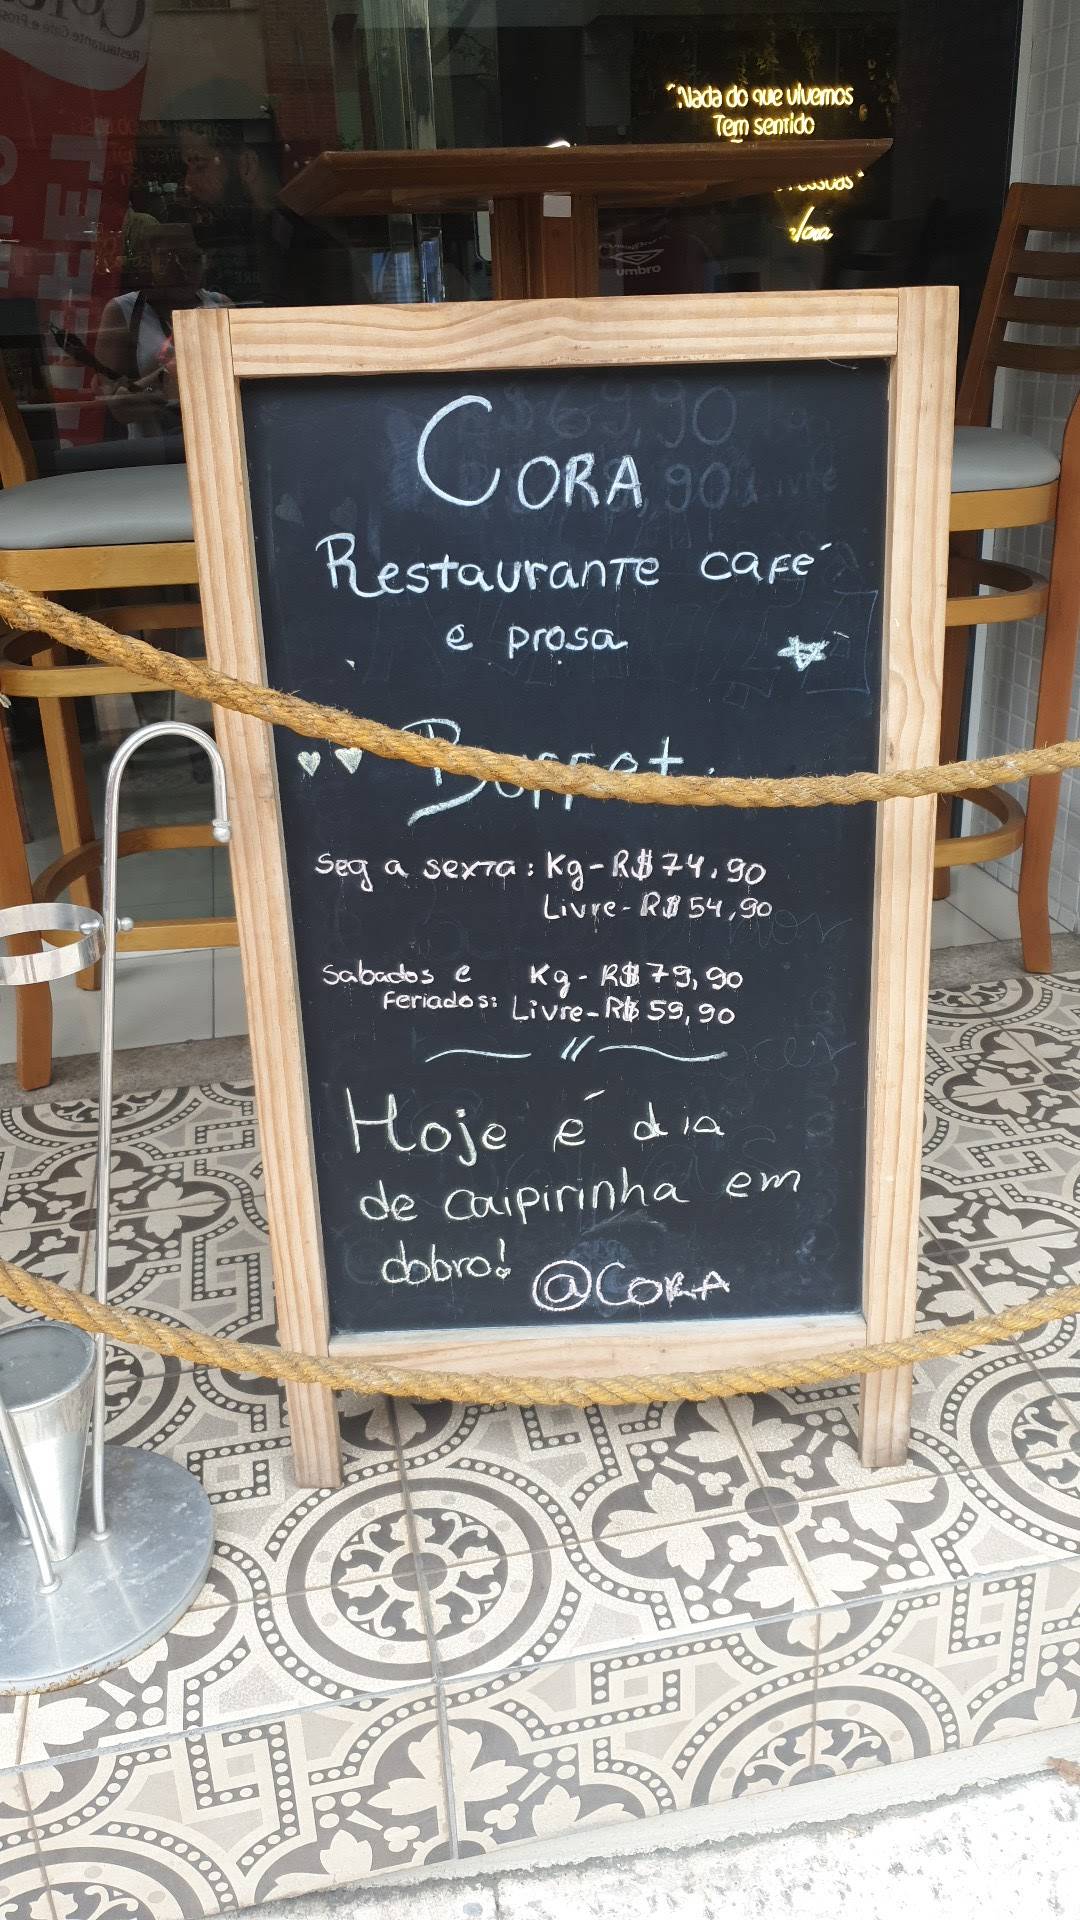 "Nada do que vivemos
Tem sentido
umbro
CORA
Restaurante café
e prosa
Buffet
Seg a sexta: Kg - R$ 74,90
Livre - R$ 54,90
Sabados e Kg - R$ 79,90
Feriados: Livre - R$ 59,90
Hoje é dia
de caipirinha em
dobro! @CORA